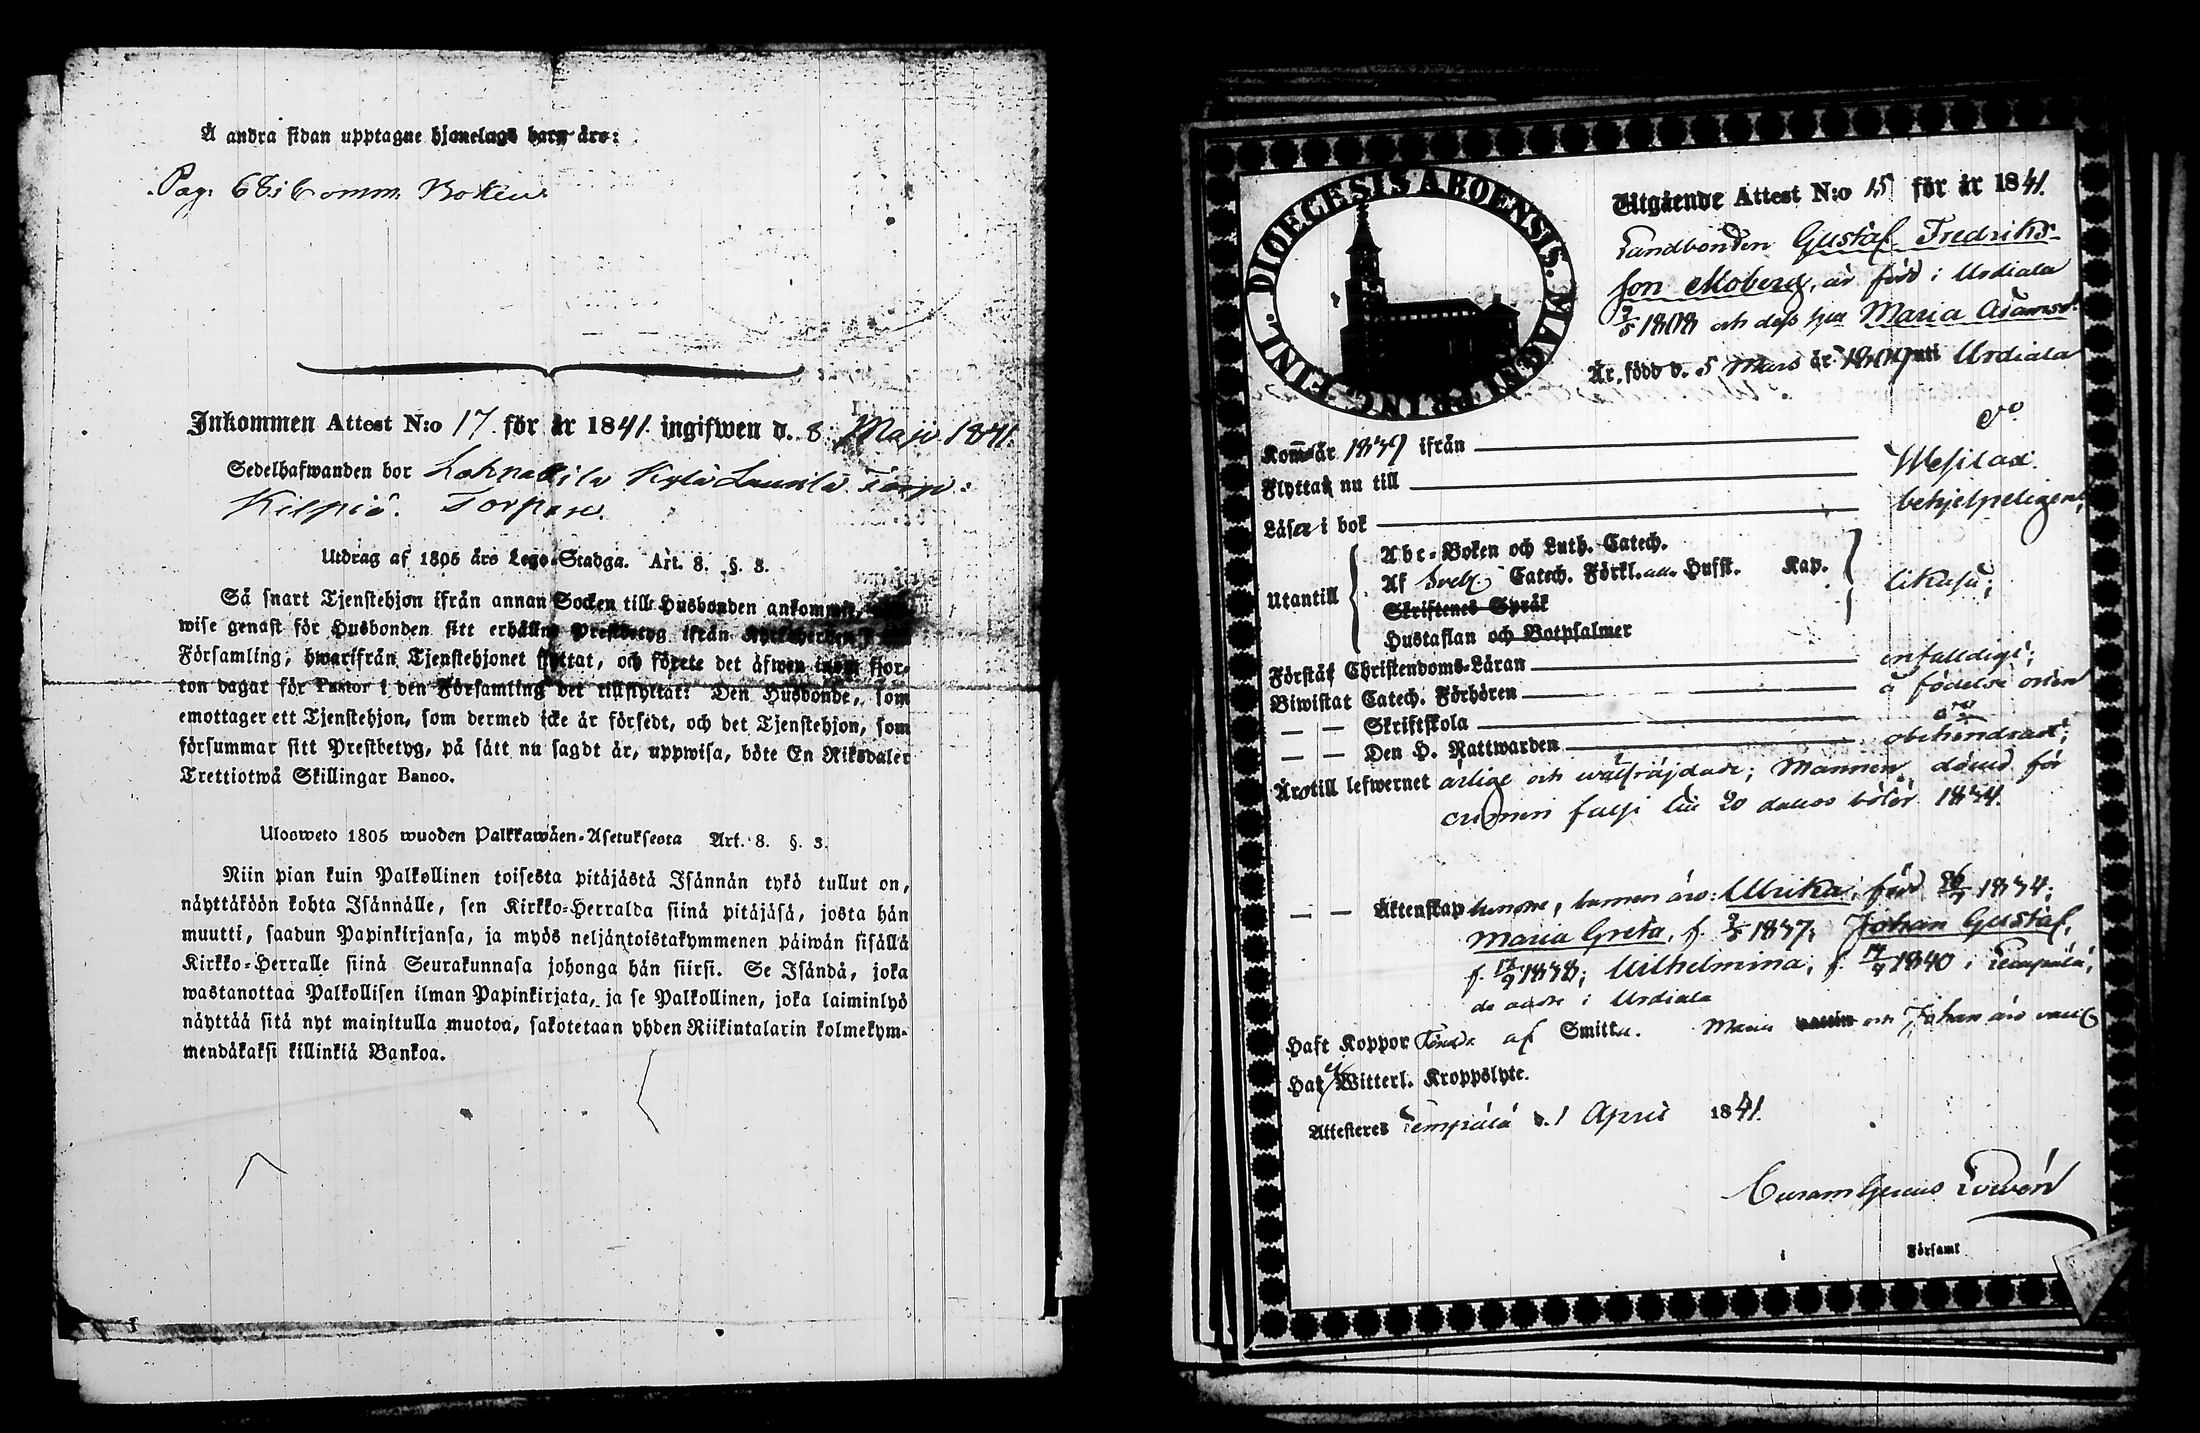 Å andra sidan upptagne hjonelags barn äro:
Pag. 68 i Comm. Boken
Inkommen Attest N:o 17 för år 1841 ingifwen d. 8 Maji 1841.
Sedelhafwanden bor Kylä Laurila Torp:
Kilpiö. Torpare.
Utdrag af 1805 års Lego-Stadga. Art. 8. §. 3.
Så snart Tjenstehjon ifrån annan Socken till Husbonden ankommit,
wise genast för Husbonden sitt erhållne Prestbetyg ifrån Kyrkoherden i
Församling, hwarifrån Tjenstehjonet flyttat, och förete det äfwen inom fjor-
ton dagar för Pastor i den Församling det tillflyttat: Den Husbonde, som
emottager ett Tjenstehjon, som dermed icke är försedt, och det Tjenstehjon, som
försummar sitt Prestbetyg, på sätt nu sagdt är, uppwisa, böte En Riksdaler
Trettiotwå Skillingar Banco.
Ulosweto 1805 wuoden Palkkawäen-Asetuksesta Art. 8. §. 3.
Niin pian kuin Palkollinen toisesta pitäjästä Isännän tykö tullut on,
näyttäköön kohta Isännälle, sen Kirkko-Herralda siinä pitäjäsä, josta hän
muutti, saadun Papinkirjansa, ja myös neljäntoistakymmenen päiwän sisällä
Kirkko-Herralle siinä Seurakunnasa johonga hän siirsi. Se Isändä, joka
wastanottaa Palkollisen ilman Papinkirjata, ja se Palkollinen, joka laiminlyö
näyttää sitä nyt mainitulla muotoa, sakotetaan yhden Riikintalarin kolmekym-
mendäkaksi killinkiä Bankoa.
DIOECESIS ABOENSIS. MAGN. PRINC. FINL.
Utgående Attest N:o 15 för år 1841.
Landbonden Gustaf Fredriks-
son Moberg, är född i Urdiala
2/5 1808 och dess hu Maria Adamsd:
Är, född d. 5 Mars år 1809 uti Urdiala
Komm år 1839 ifrån d:o
Flyttar nu till Wesilax.
Läser i bok behjelpeligen;
Utantill Abc-Boken och Luth. Catech.
Af Svebi. Catech. Förkl. Hufst. Kap. likaså;
Skriftenes Språk
Hustaflan och Botpsalmer
Förstår Christendoms-Läran enfaldigt;
Biwistat Catech. Förhören å födelse orten
— — Skriftskola d:o
— — Den H. Nattwarden obehindrad;
Äro till lefwernet ärlige och wälfräjdade; Mannen dömd för
crimen falsi till 20 dalers böter 1834.
— — Äktenskap barnen äro: Ulrika, född 26/7 1834;
Maria Greta, f. 2/5 1837; Johan Gustaf,
f. 13/9 1838; Wilhelmina, f. 14/9 1840 i Lempälä,
de andre i Urdiala
Haft Koppor af Smitta. Maria och Johan äro vacc
Har ej Witterl. Kroppslyte.
Attesteras Lempälä d. 1 April 1841.
Curam Gerens
i Församl